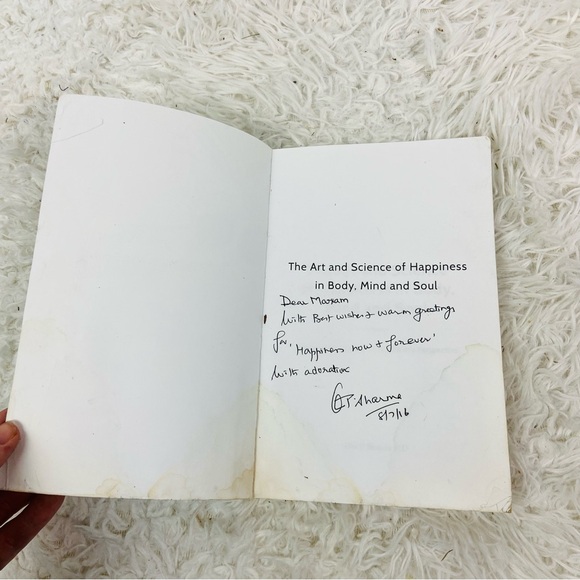 The Art and Science of Happiness
in Body, Mind and Soul
Dear Maxam
With Best wishes & warm greetings
for, 'Happiness now & forever'
With adoration
Sharma
8/7/16